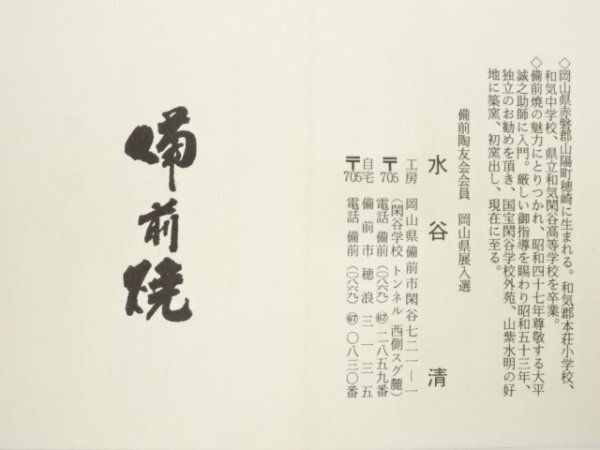 ◇岡山県赤磐郡山陽町穂崎に生まれる。和気郡本荘小学校、
和気中学校、県立和気閑谷高等学校を卒業。
◇備前焼の魅力にとりつかれ、昭和四十七年尊敬する大平
誠之助師に入門。厳しい御指導を賜わり昭和五十三年、
独立のお勧めを頂き、国宝閑谷学校外苑、山紫水明の好
地に築窯、初窯出し、現在に至る。
備前陶友会会員　岡山県展入選
水谷　清
工房　岡山県備前市閑谷七二一―一
（閑谷学校　トンネル　西側スグ麓）
〒705　電話　備前（〇八六九）67二八五九番
自宅　備前市穂浪三一三五
〒705　電話　備前（〇八六九）67〇八三〇番
備前焼